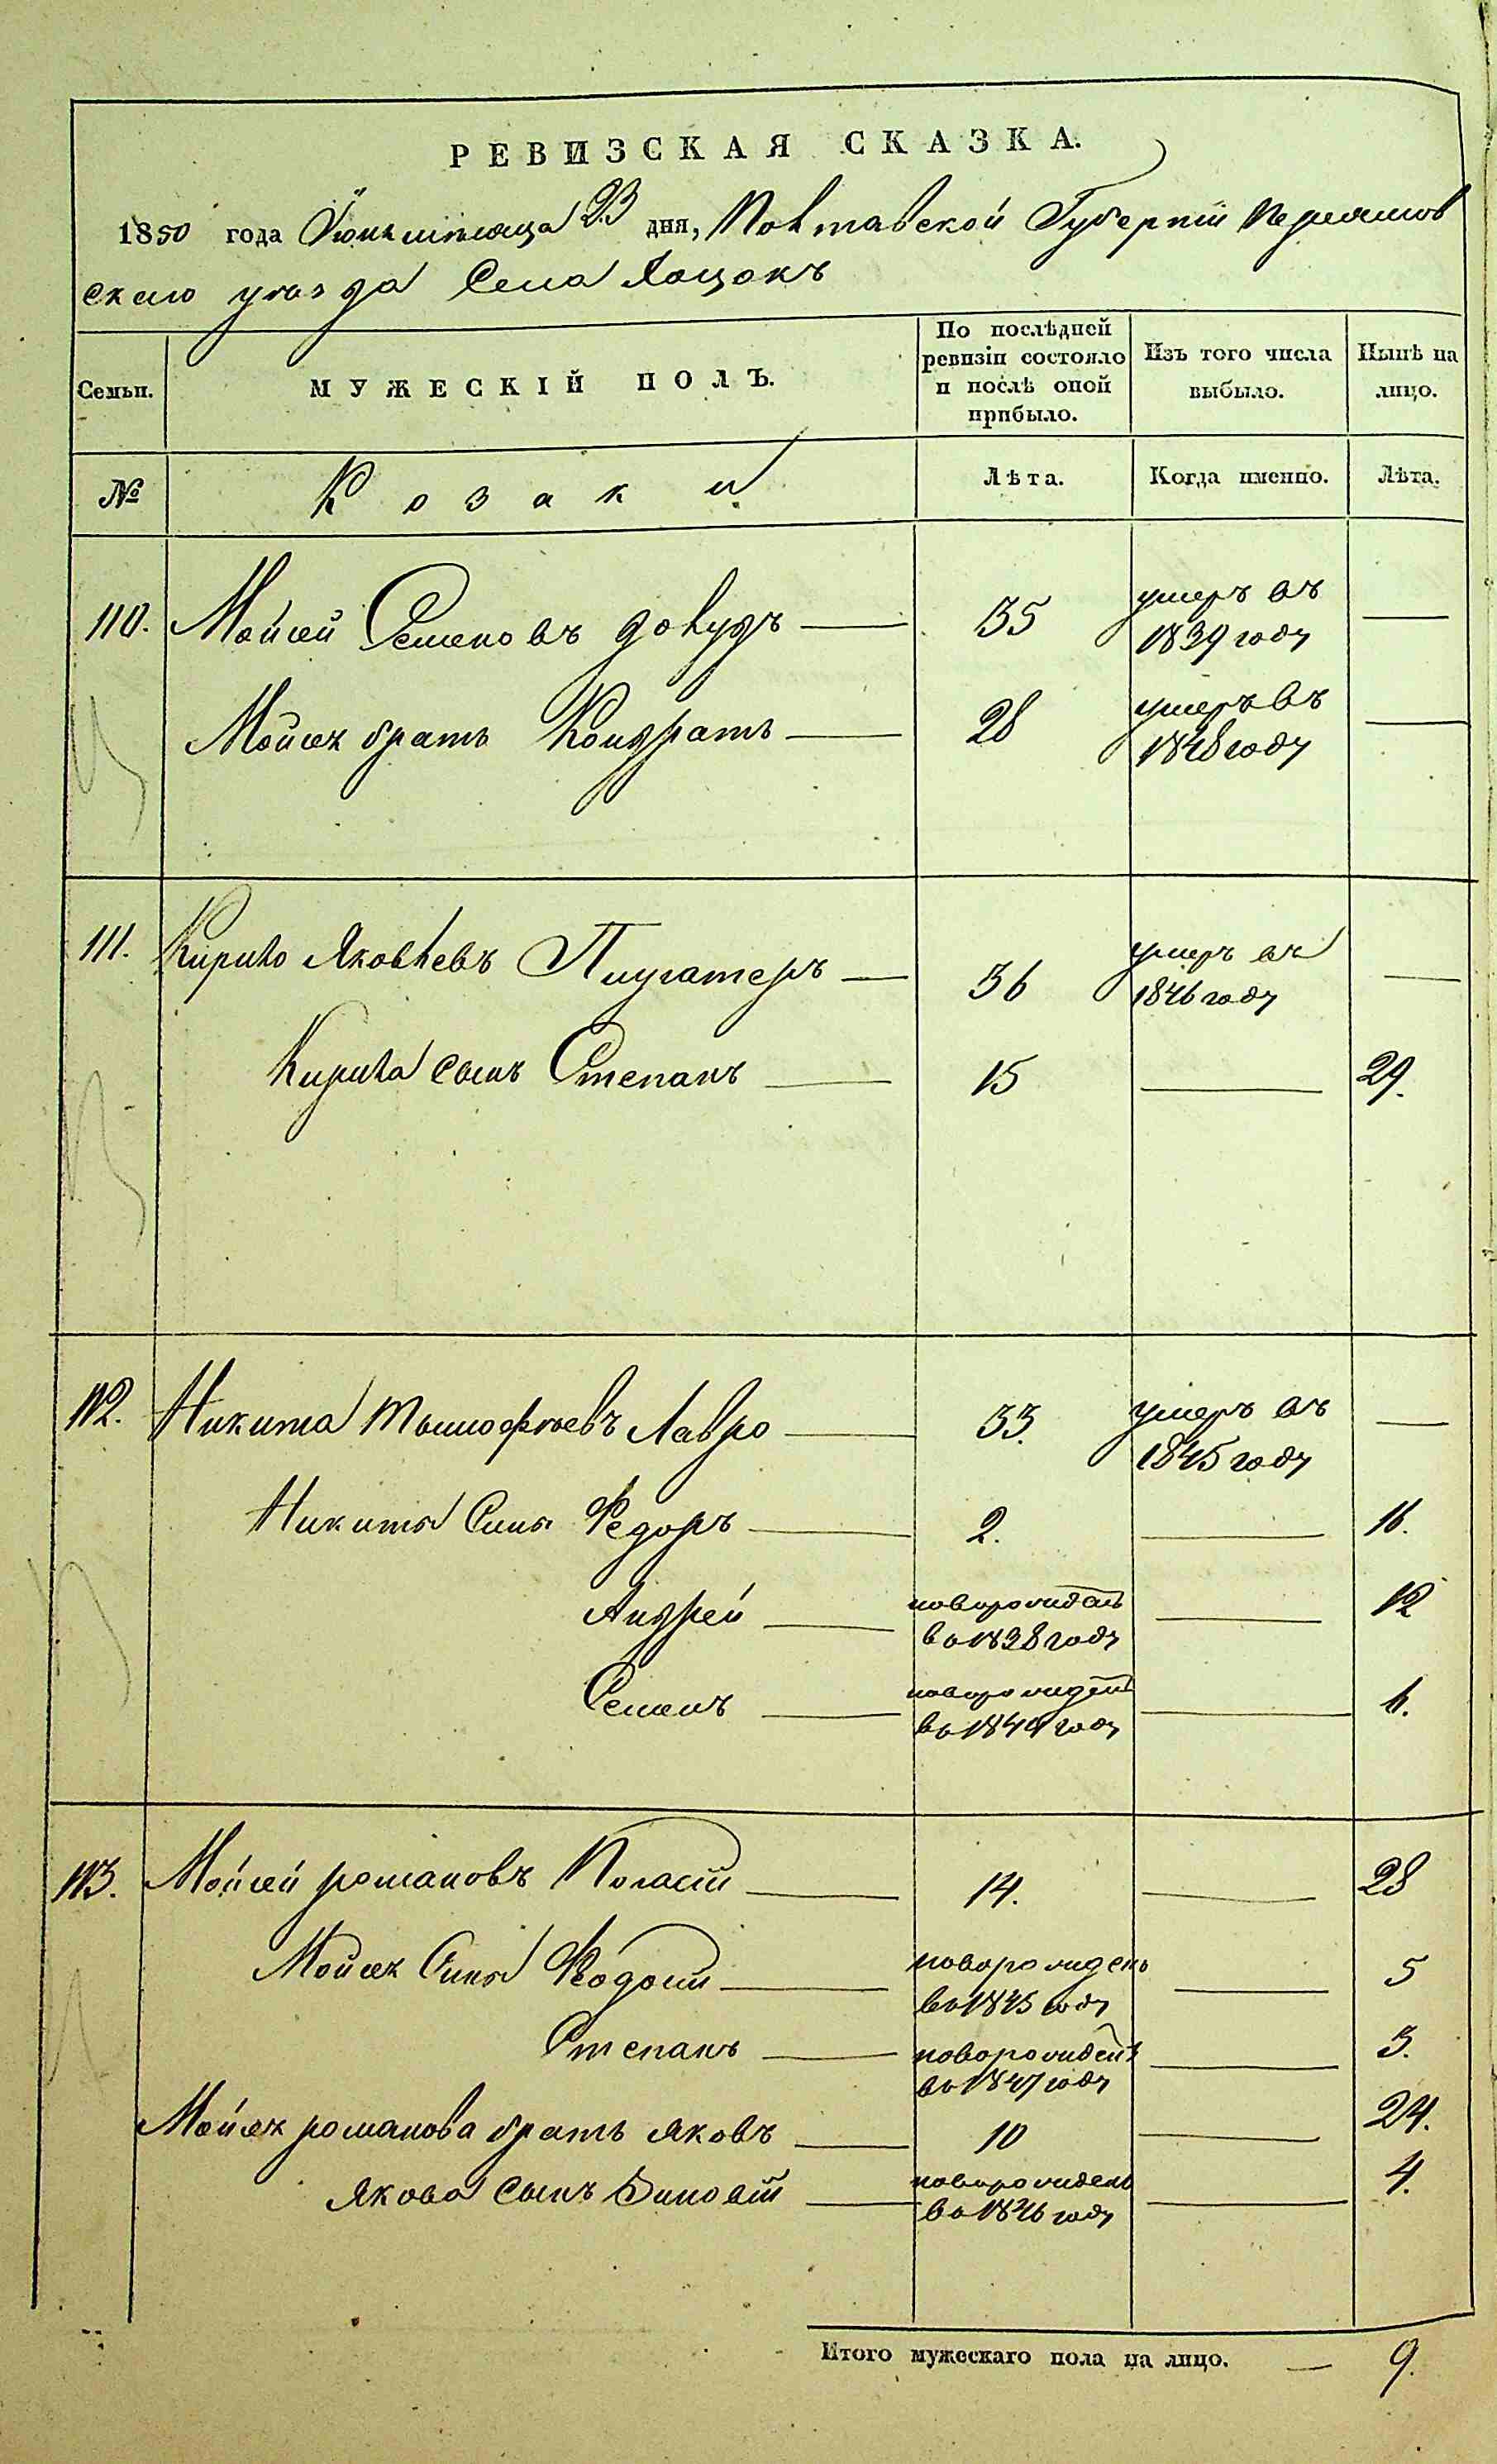 РЕВИЗСКАЯ СКАЗКА.
1850 года Іюня мѣсяца 23 дня, Полтавской Губерніи Пирятин
скаго уѣзда Села Лащокъ
Семьи.
МУЖЕСКІЙ ПОЛЪ.
По послѣдней ревизіи состояло и послѣ оной прибыло.
Изъ того числа выбыло.
Нынѣ на лицо.
№
Козаки
Лѣта.
Когда именно.
Лѣта.
110. Мойсей Семеновъ Довудъ — 35 умеръ въ 1839 году —
Мойсея братъ Кондратъ — 28 умеръ въ 1848 году —
111. Кирило Яковлевъ — 36 умеръ въ 1846 году —
Кирила сынъ Степанъ — 15 — 29.
112. Никита Тымофѣевъ Лавро — 33. умеръ въ 1845 году —
Никиты Сыны Федоръ — 2. — 16.
Андрей — новорожденъ во 1838 году — 12
Семенъ — новорожденъ во 1844 году — 6.
113. Мойсей романовъ — 14. — 28
Мойсея Сыны Феодосій — новорожденъ во 1845 году — 5
Степанъ — новорожденъ во 1847 году — 3.
Мойсея романова братъ Яковъ — 10 — 24.
Якова сынъ Зиновій — новорожденъ во 1846 году — 4.
Итого мужескаго пола на лицо. — 9.